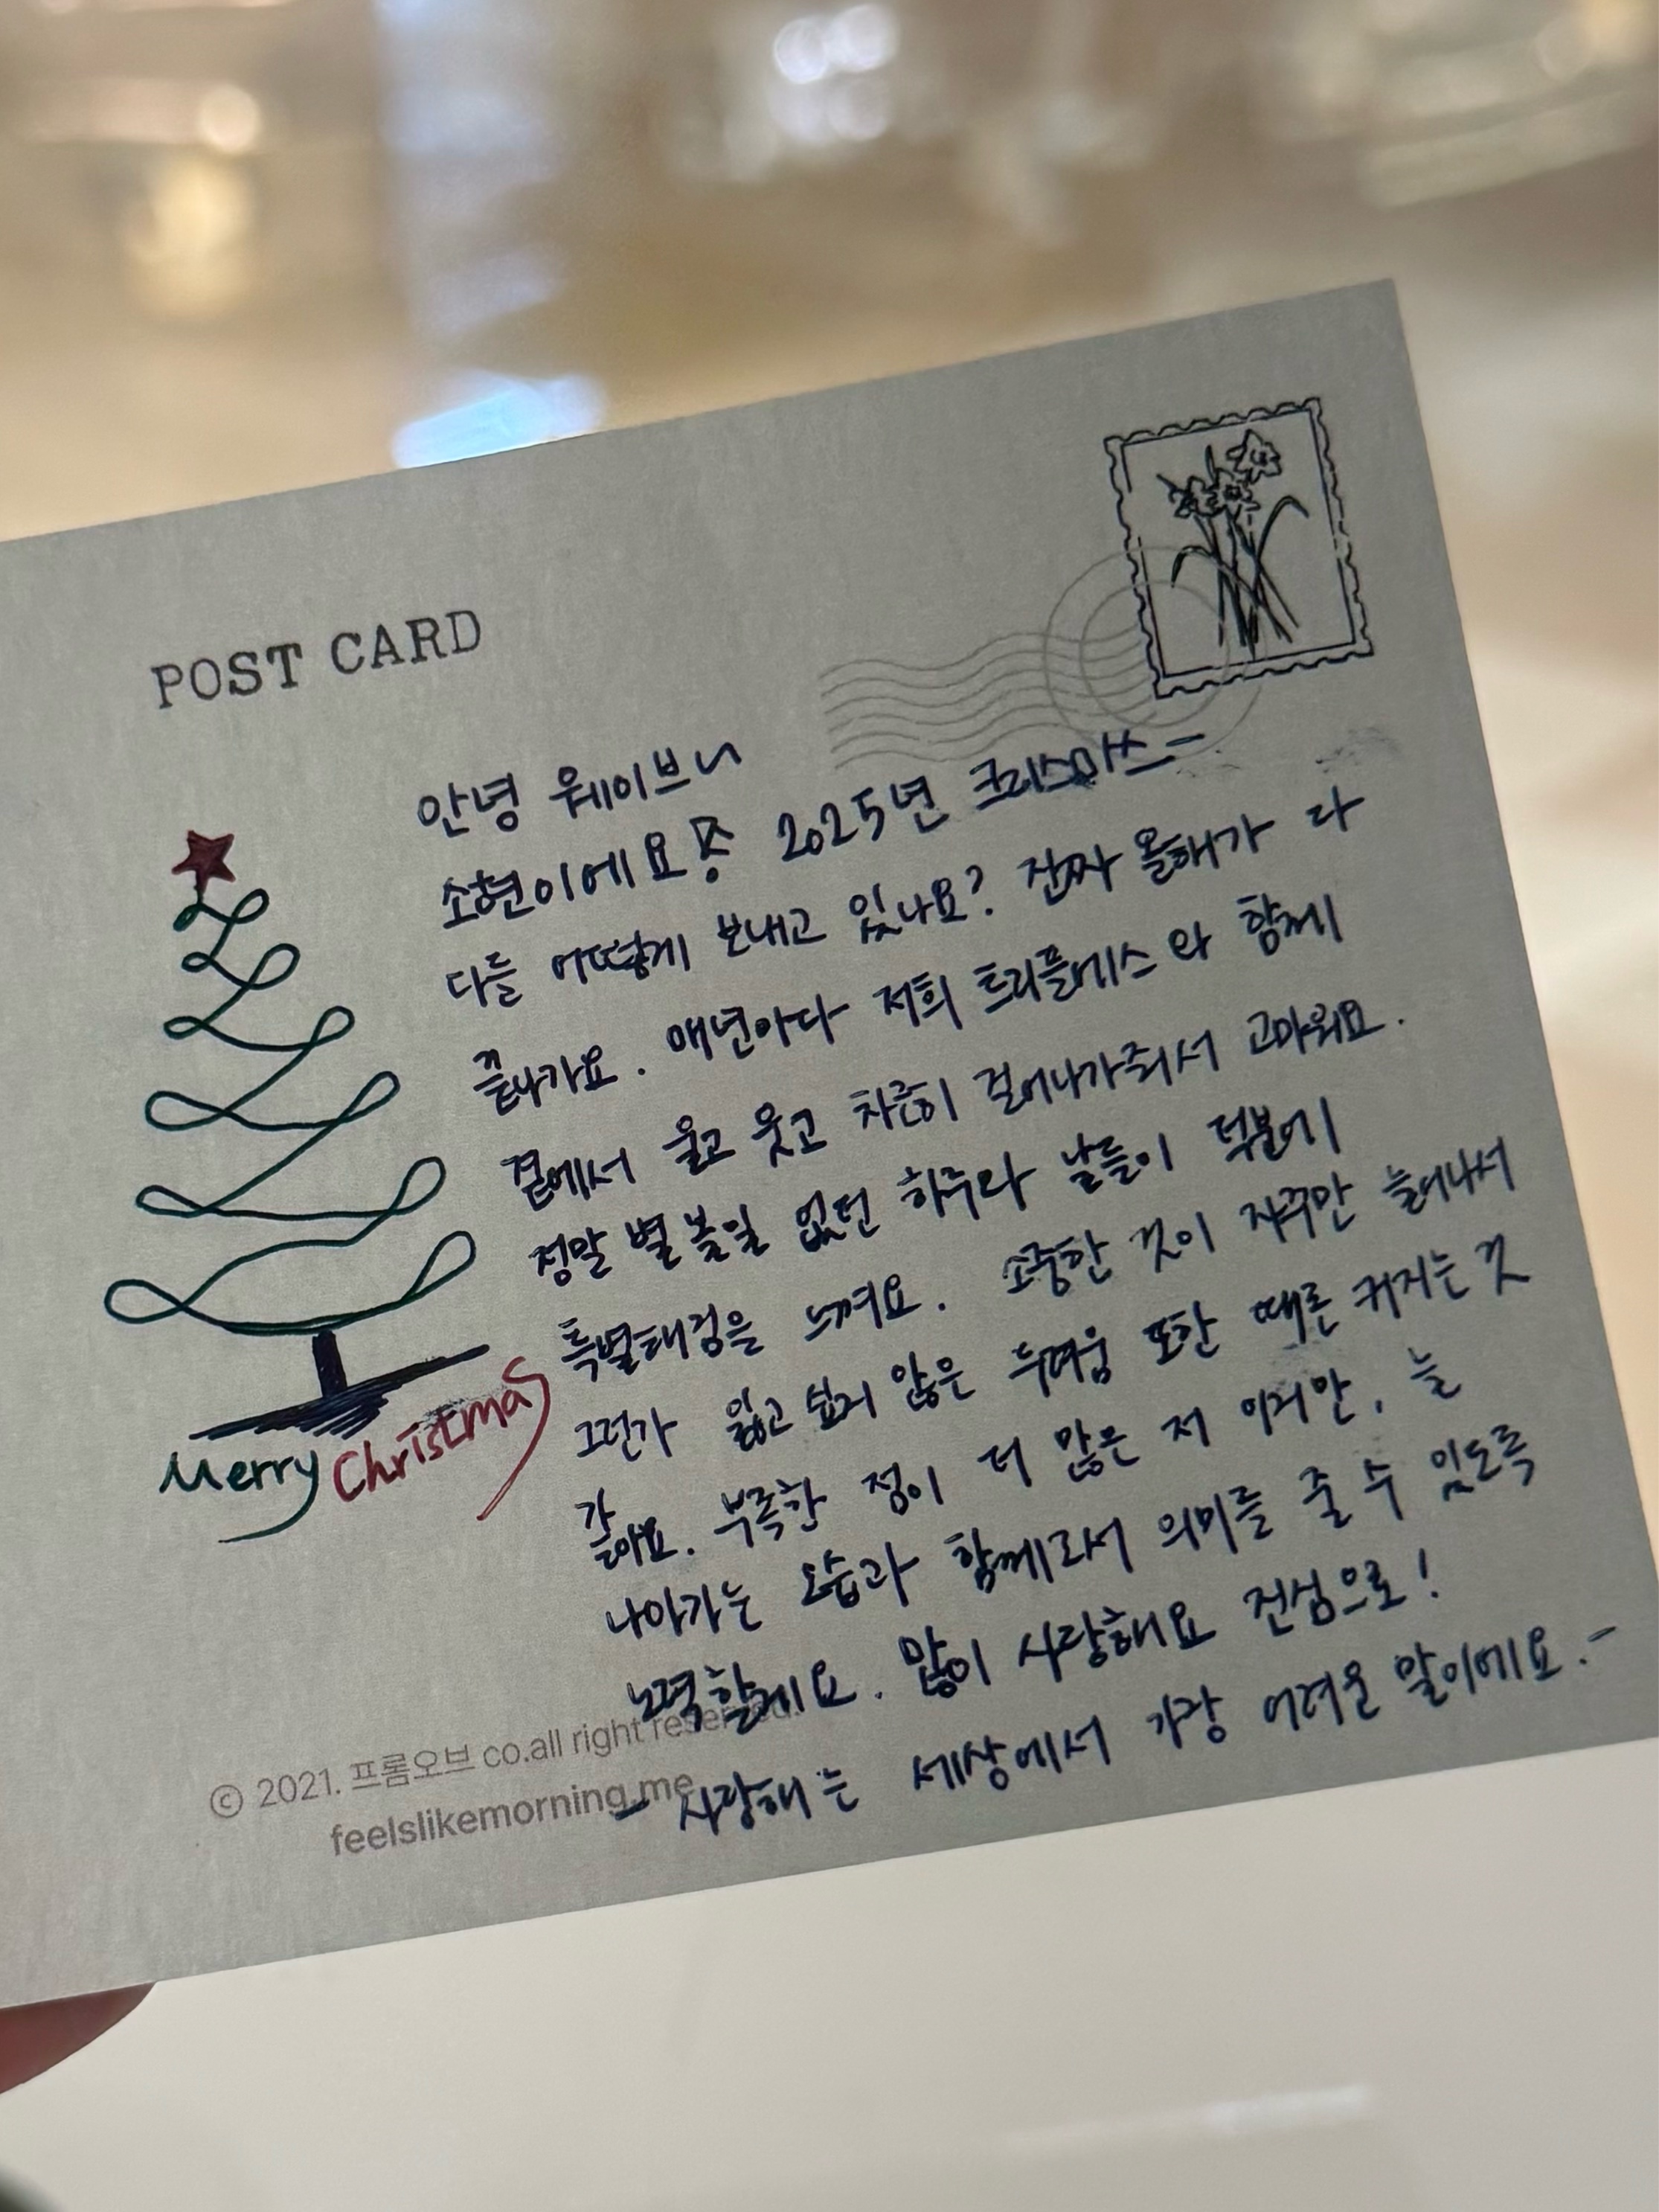 POST CARD
안녕 웨이브~
소현이에요 2025년 크리스마스-
다들 어떻게 보내고 있나요? 진짜 올해가 다
끝나가요. 매년마다 저희 트리플에스와 함께
곁에서 울고 웃고 차근히 걸어나가줘서 고마워요.
정말 별 볼일 없던 하루와 날들이 덕분에
특별해졌음을 느껴요. 소중한 것이 자꾸만 늘어나서
그런가 잃고 싶지 않은 두려움 또한 때론 커지는 것
같아요. 부족한 점이 더 많은 저 이지만, 늘
나아가는 모습과 함께라서 의미를 줄 수 있도록
노력할게요. 많이 사랑해요 진심으로!
- 사랑해는 세상에서 가장 어려운 말이에요.-
Merry Christmas
© 2021. 프롬오브 co.all right reserved.
feelslikemorning.me